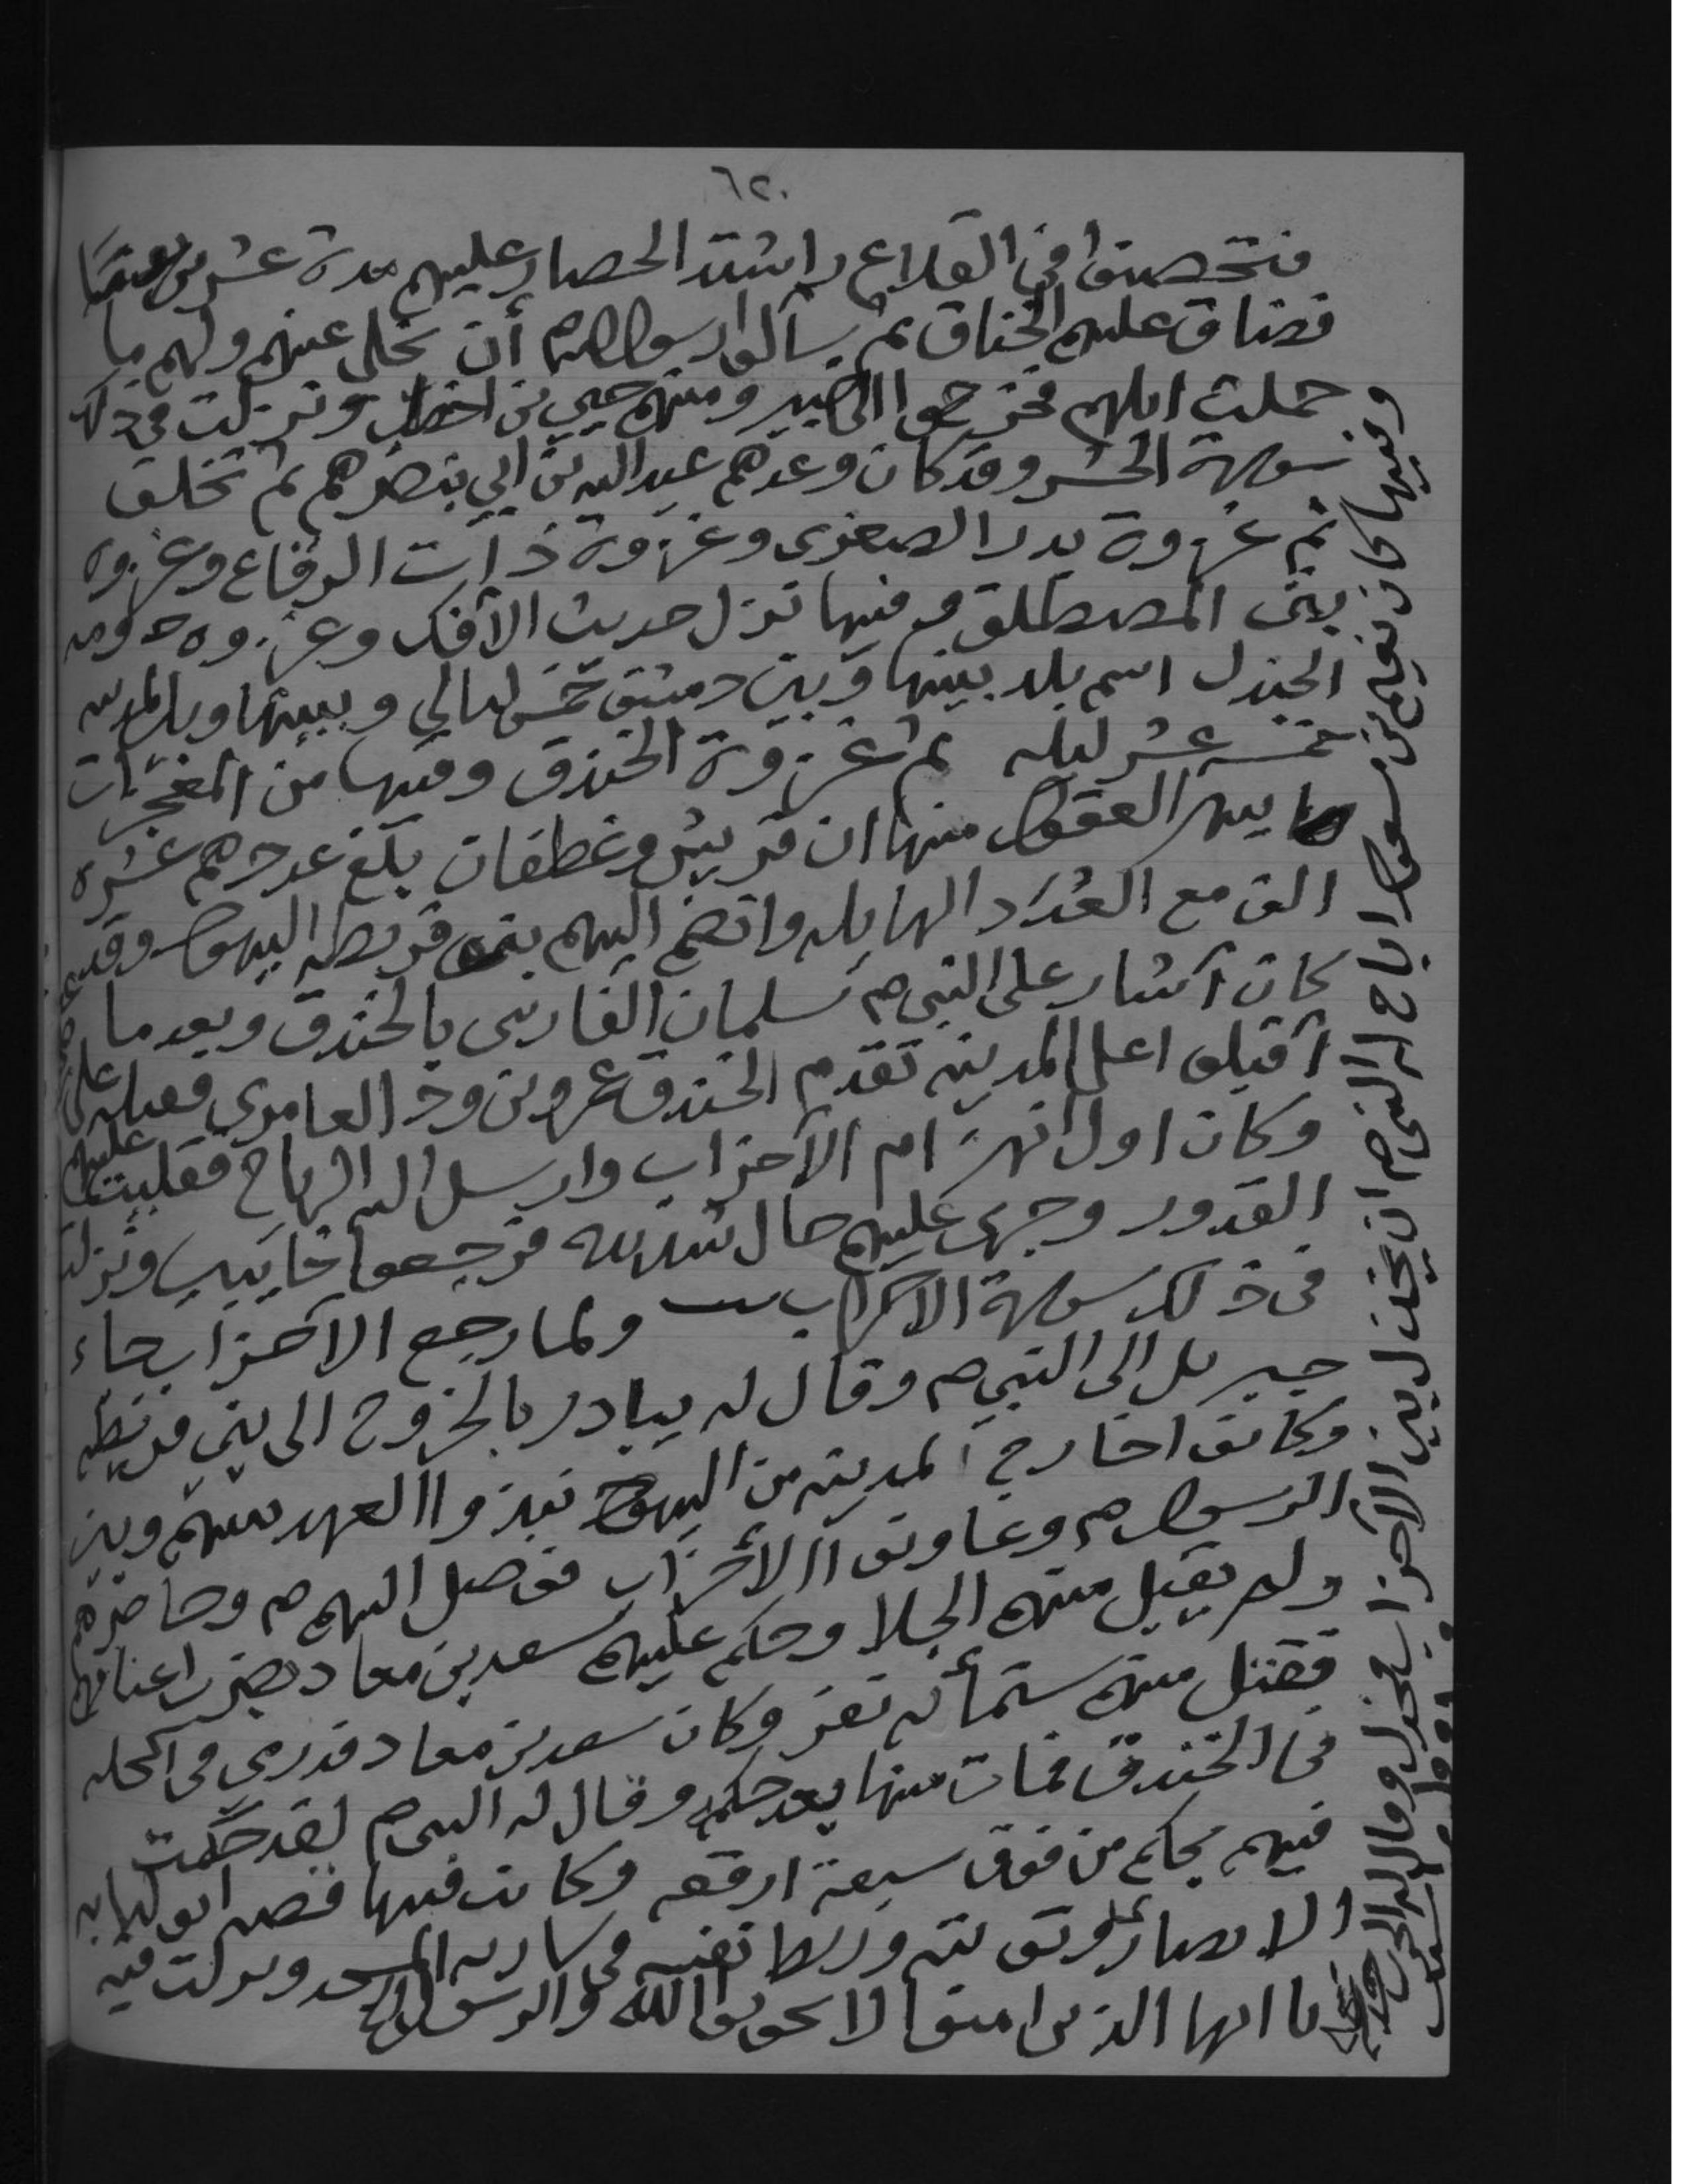 ٦٢٠
فتحصنوا في القلاع واشتد الحصار عليهم مدة عشرين
فضاق عليهم الخناق ثم سألوا رسول الله م أن تخلى عنهم ولهم ما
حملت ابلهم فخرجوا الى خيبر ومنهم حيي بن اخطب ونزلت في ذلك
سورة الحشر وقد كان وعدهم عبد الله بن ابي بنصرهم ثم تخلف
ثم غزوة بدر الصغرى وغزوة ذات الرقاع وغزوه
بنى المصطلق وفيها نزل حديث الافك وغزوه دومه
الجندل اسم بلد بينها وبين دمشق خمس ليالي وبينها وبين المدينه
خمسه عشر ليله ثم غزوة الخندق وفيها من المعجزات
ما يبهر العقول منها ان قريش وغطفان بلغ عددهم عشره
الف مع العدد الهايله وانضم اليهم بنى قريظه اليهود وقد
كان أشار على النبي م سلمان الفارسى بالخندق وبعد ما
أقبلوا على المدينه تقدم الخندق عمرو بن ود العامري فقتله علي
وكان اول انهزام الأحزاب وارسل الله الرياح فقلبت عليهم
القدور وجرى عليهم حال شديده فرجعوا خايبين ونزلت
في ذلك سورة الاحزاب ولما رجع الأحزاب جاء
جبريل الى النبي م وقال له يبادر بالخروج الى بني قريظه
وكانوا خارج المدينه من اليهود نبذوا العهد بينهم وبين
الرسول م وعاونوا الأحزاب فوصل اليهم م وحاصرهم
ولم يقبل منهم الجلا وحكم عليهم سعد بن معاد بضرب اعناقهم
فقتل منهم ستمأئه نفر وكان سعد بن معاد قد رمى في اكحله
في الخندق فمات منها بعد حكمه وقال له النبي م لقد حكمت
فيهم بحكم من فوق سبعة ارقعه وكانت فيها قصه ابو لبابه
الانصاري وتوبته وربط نفسه في ساريه المسجد ونزلت فيه
يا ايها الذين امنوا لا تخونوا الله والرسول الخ
وفيها كان نعيم بن مسعود اباح له النبي م ان يخذل بين الأحزاب فخذل وقال له الحرب خدعه